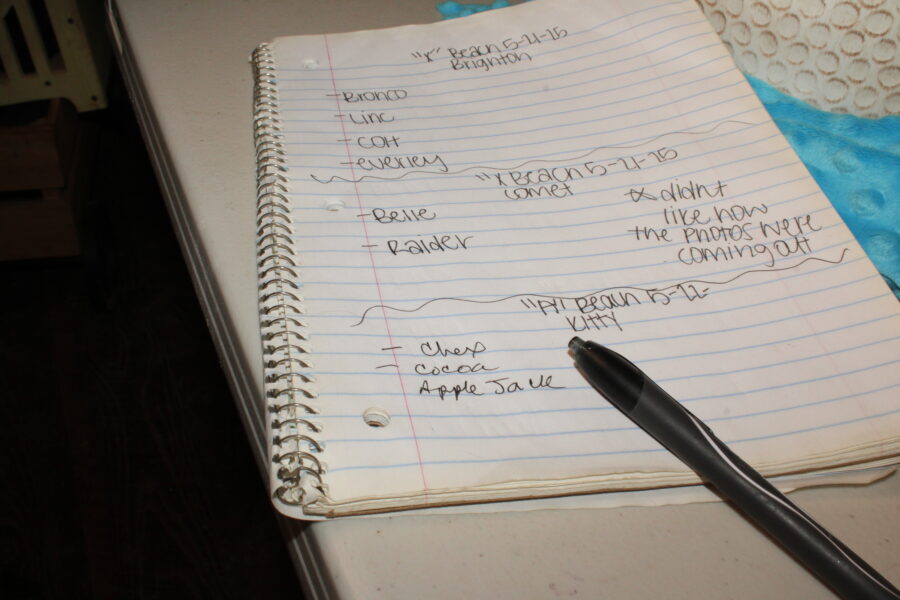 "X" Beach 5-21-25
Brighton
- Bronco
- Linc
- Colt
- everley
"X Beach 5-21-25
comet
- Belle
- Raider
* didn't
like how
the photos were
coming out
"PY" Beach 5-22-
Kitty
- Chex
- Cocoa
Apple Jack